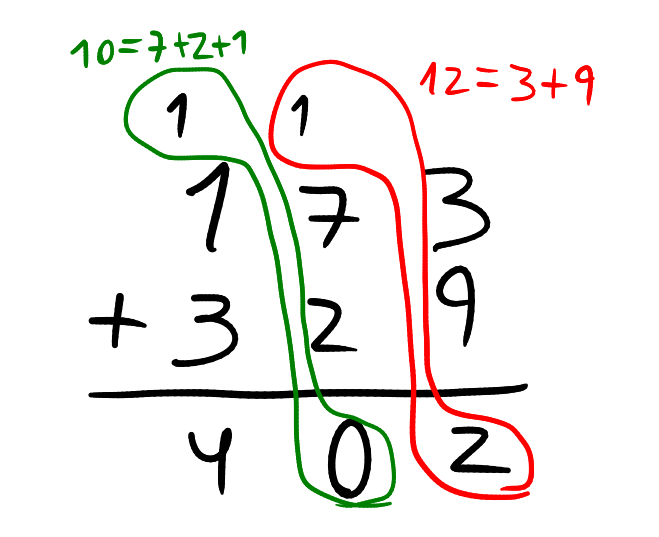 10=7+2+1
12=3+9
1 1
1 7 3
+ 3 2 9
4 0 2